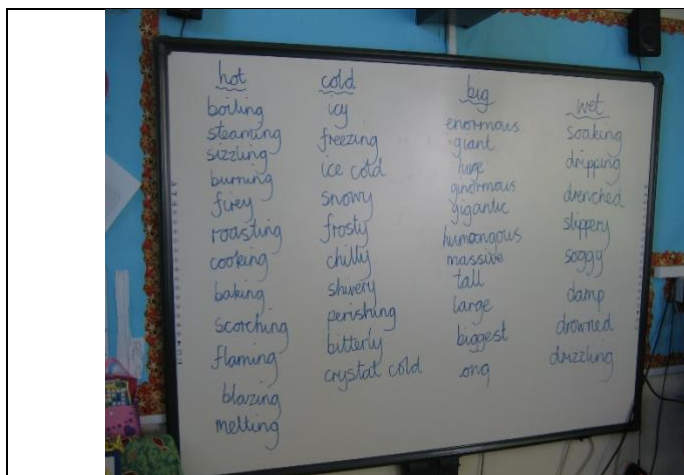 hot
boiling
steaming
sizzling
burning
firey
roasting
cooking
baking
scorching
flaming
blazing
melting
cold
icy
freezing
ice cold
snowy
frosty
chilly
shivery
perishing
bitterly
crystal cold
big
enormous
giant
huge
ginormous
gigantic
humoongous
massive
tall
large
biggest
wet
soaking
dripping
drenched
slippery
soggy
damp
drowned
drizzling